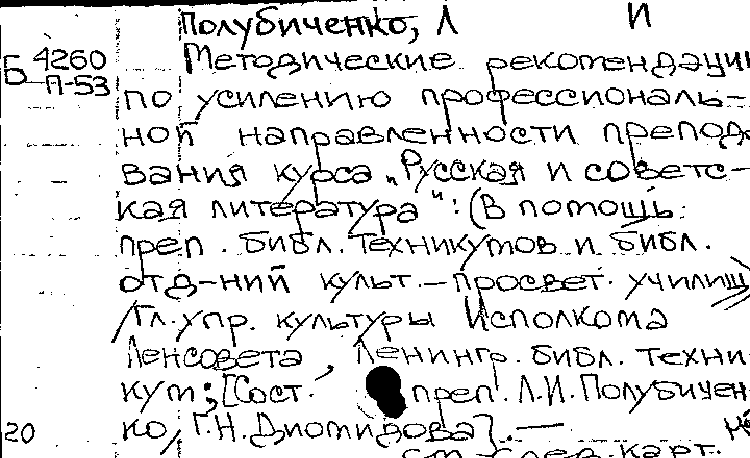 Полубиченко, Л И
Б 4260 Методические рекомендации
П-53
по усилению профессиональ-
ной направленности препода
вания курса „Русская и советс-
кая литература": (В помощь
преп. библ. техникумов и библ.
отд-ний культ.-просвет. училищ)
/Гл. упр. культуры Исполкома
Ленсовета, Ленингр. библ. техни
кум; [Сост. преп. Л.И. Полубичен
20 ко, Г.Н. Диомидова]. —
см. след. карт.